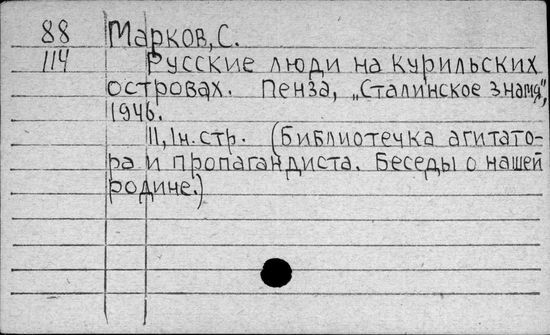 88 Марков, С.
114 Русские люди на Курильских
островах. Пенза, „Сталинское знамя",
1946.
11, 1 н. стр. (Библиотечка агитато-
ра и пропагандиста. Беседы о нашей
родине.)